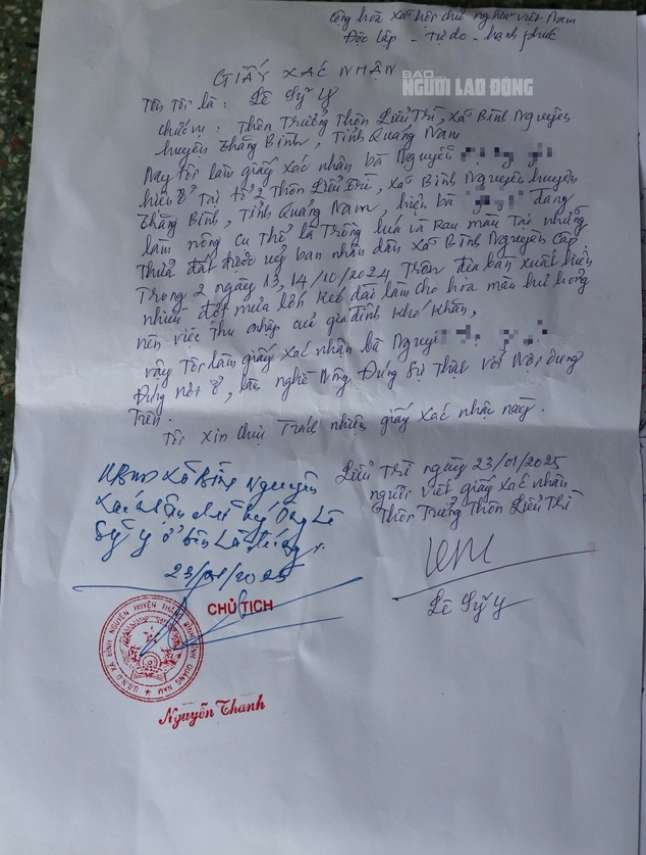 Cộng hòa xã hội chủ nghĩa việt Nam
Độc lập - Tự do - Hạnh phúc
BÁO
NGƯỜI LAO ĐỘNG
GIẤY XÁC NHẬN
Tên Tôi là : Lê Sỹ Y
chức vụ : Thôn Trưởng Thôn Liễu Trì, xã Bình Nguyên
huyện Thăng Bình, Tỉnh Quảng Nam
Nay tôi làm giấy xác nhận bà Nguyễn
hiện ở Tại tổ 2 Thôn Liễu Trì, xã Bình Nguyên huyện
Thăng Bình, Tỉnh Quảng Nam, hiện bà đang
làm nông cụ thể là Trồng lúa và Rau màu Tại những
thửa đất được uỷ ban nhân dân xã Bình Nguyên cấp,
Trong 2 ngày 13, 14/10/2024 Trên địa bàn xuất hiện
nhiều đợt mưa lớn kéo dài làm cho hoa màu hư hỏng
nên việc thu nhập của gia đình khó khăn,
vậy Tôi làm giấy xác nhận bà Nguyễ
Đúng nơi ở, nghề Nông Đúng Sự Thật với Nội dung
Trên.
Tôi xin chịu Trách nhiệm giấy xác nhận này.
Liễu Trì ngày 23/01/2025
người viết giấy xác nhận
Thôn Trưởng Thôn Liễu Trì
Lê Sỹ Y
UBND xã Bình Nguyên
Xác nhận chữ ký Ông Lê
Sỹ Y ở bên là đúng.
23/01/2025
CHỦ TỊCH
U.B.N.D XÃ BÌNH NGUYÊN HUYỆN THĂNG BÌNH TỈNH QUẢNG NAM
Nguyễn Thanh